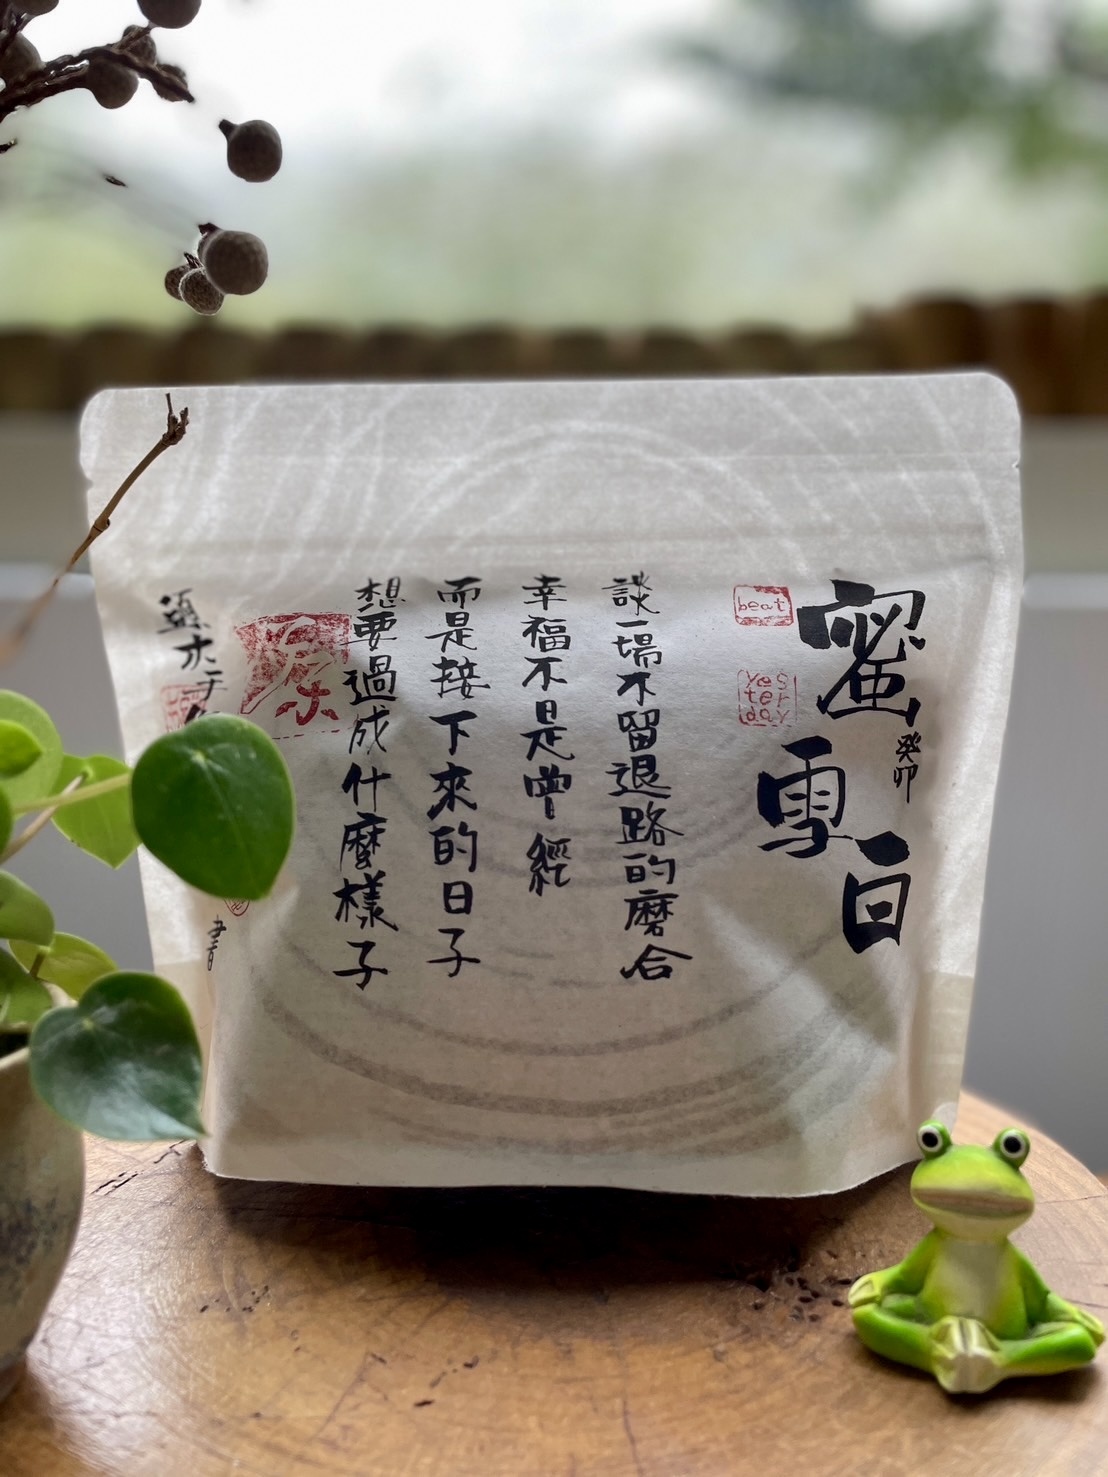 蜜雪日
癸卯
beat
yes
ter
day
談一場不留退路的磨合
幸福不是曾經
而是接下來的日子
想要過成什麼樣子
原
書